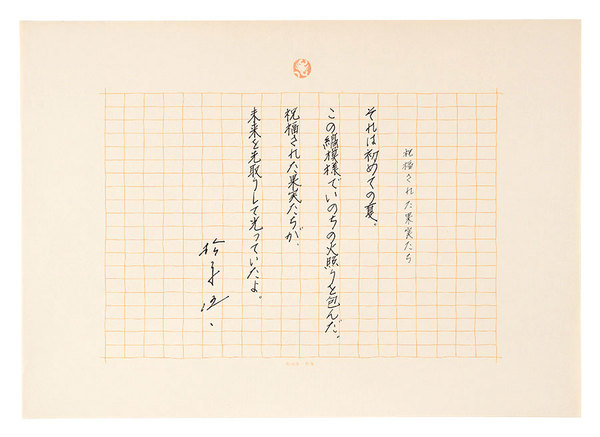 祝福された果実たち
それは初めての夏、
この縞模様でいのちの火照りを包んだ。
祝福された果実たちが、
未来を先取りして光っていたよ。